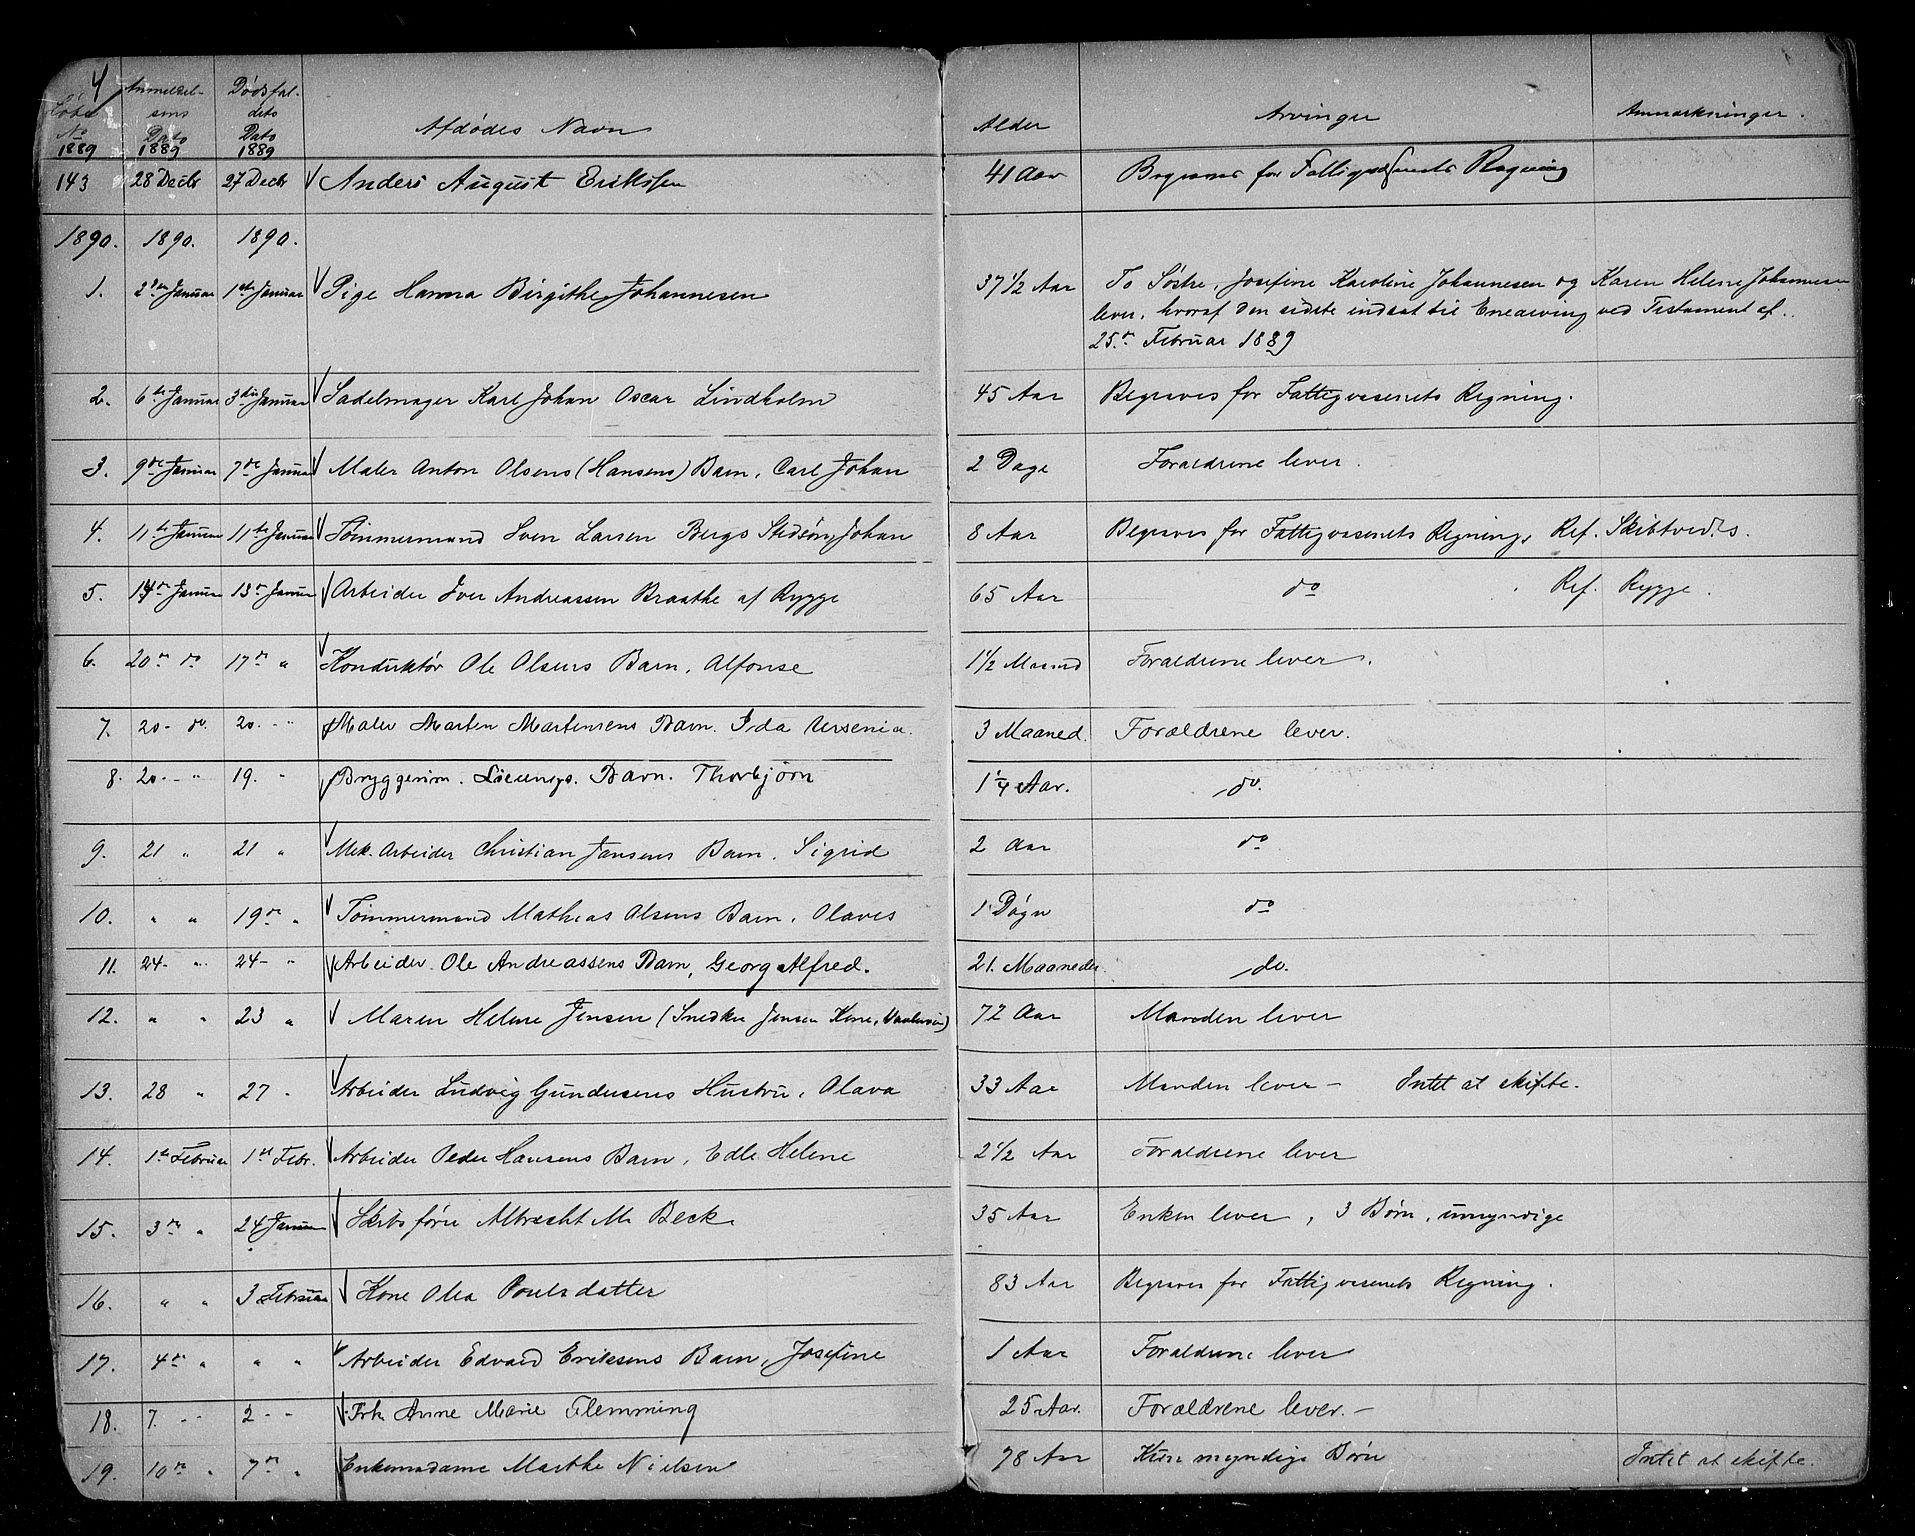 4
Løbe Anmeldel- Dødsfal-
No sens Dato dets Dato Afdødes Navn Alder Arvinger Anmærkninger.
1889 1889 1889
143 28 Decbr 27 Decbr Anders August Eriksen 41 Aar Begraves for Fattigvæsenets Regning
1890. 1890. 1890.
1. 2den Januar 1ste Januar Pige Hanna Birgithe Johannesen 37 1/2 Aar To Søstre, Josefine Karoline Johannesen og Karen Helene Johannesen
lever, hvoraf den sidste indsat til Enearving ved Testament af
25de Februar 1889
2. 6te Januar 3die Januar Sadelmager Karl Johan Oscar Lindholm 45 Aar Begraves for Fattigvæsenets Regning.
3. 9de Januar 7de Januar Maler Anton Olsens (Hansens) Barn, Carl Johan 2 Dage Forældrene lever.
4. 11te Januar 11te Januar Tømmermand Sven Larsen Bergs Stedsøn, Johan 8 Aar Begraves for Fattigvæsenets Regning, Ref. Skibtvedts.
5. 14de Januar 13de Januar Arbeider Iver Andreassen Braathe af Rygge 65 Aar do Ref. Rygge.
6. 20de do 17de " Konduktør Ole Olsens Barn, Alfonse 1 1/2 Maaned Forældrene lever.
7. 20- do. 20. - " Maler Marten Martensens Barn. Ida Ursenia. 3 Maaned. Forældrene lever.
8. 20- - " 19. " Bryggerim. Barn. Thorbjørn 1 1/4 Aar. do.
9. 21 " 21 " Mek. Arbeider Christian Jansens Barn, Sigrid 2 Aar do
10. " " 19de " Tømmermand Mathias Olsens Barn, Olaves 1 Døgn do
11. 24- " 24- " Arbeider Ole Andreassens Barn, Georg Alfred. 21. Maaneder do.
12. " " 23 " Maren Helene Jensen (Snedker Jensen Kone, ) 72 Aar Manden lever
13. 28 " 27 " Arbeider Ludvig Gundersens Hustru, Olava 33 Aar Manden lever - Intet at skifte.
14. 1ste Februar 1ste Febr. Arbeider Peder Hansens Barn, Edle Helene 2 1/2 Aar Forældrene lever
15. 3die " 24 Januar Skibsfører Albrecht M. Beck 35 Aar Enken lever, 3 Børn, umyndige
16. " " 3 Februar Kone Olea Poulsdatter 83 Aar Begraves for Fattigvæsenets Regning.
17. 4de " " " Arbeider Edvard Eriksens Barn, Josefine 1 Aar Forældrene lever
18. 7. - - 2 - - Frk. Anne Marie Flemming 25 Aar. Forældrene lever. -
19. 10de " 7de " Enkemadame Marthe Nielsen 78 Aar Kun myndige Børn Intet at skifte.